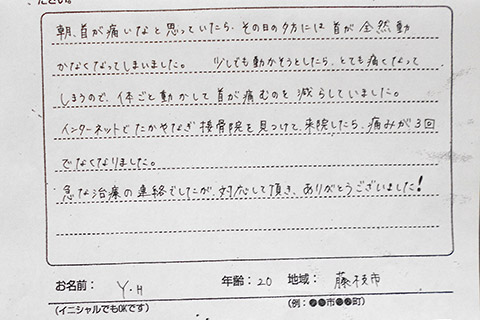 ださい。
朝、首が痛いなと思っていたら、その日の夕方には首が全然動
かなくなってしまいました。　少しでも動かそうとしたら、とても痛くなって
しまうので、体ごと動かして首が痛むのを減らしていました。
インターネットでたかやなぎ接骨院を見つけて、来院したら、痛みが3回
でなくなりました。
急な治療の連絡でしたが、対応して頂き、ありがとうございました!
お名前： Y.H 年齢：20 地域： 藤枝市
(イニシャルでもOKです) (例：●●市●●町)